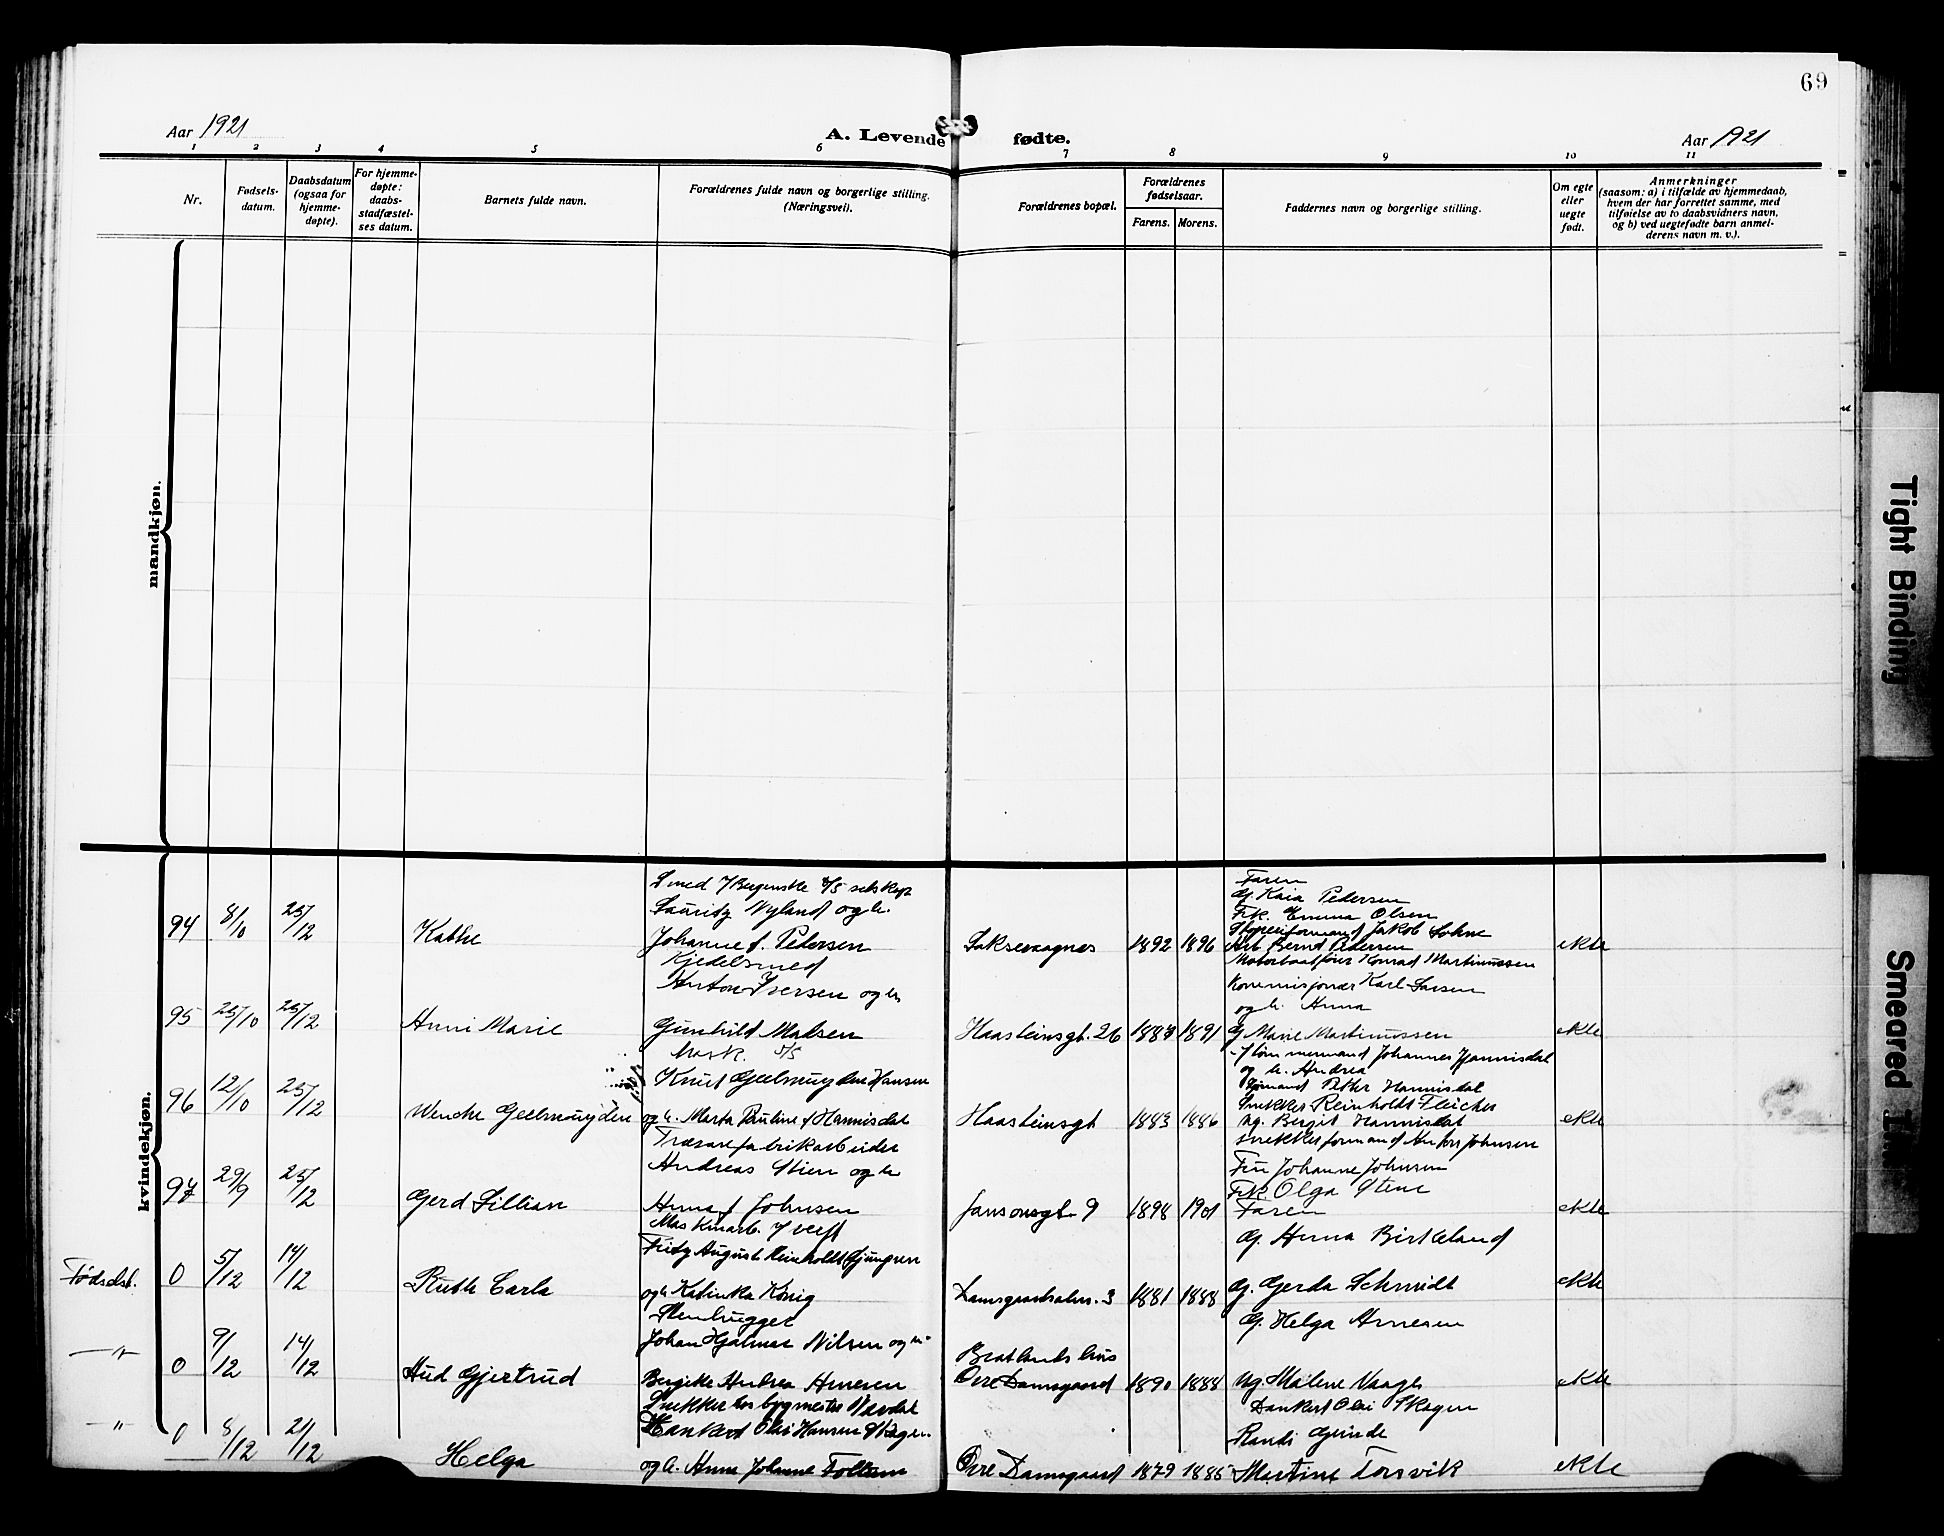 69
Aar 1921
A. Levende fødte.
Aar 1921
1 2 3 4 5 6 7 8 9 10 11
Nr.
Fødsels-
datum.
Daabsdatum
(ogsaa for
hjemme-
døpte).
For hjemme-
døpte:
daabs-
stadfæstel-
ses datum.
Barnets fulde navn.
Forældrenes fulde navn og borgerlige stilling.
(Næringsvei).
Forældrenes bopæl.
Forældrenes
fødselsaar.
Farens. Morens.
Faddernes navn og borgerlige stilling.
Om egte
eller
uegte
født.
Anmerkninger
(saasom: a) i tilfælde av hjemmedaab,
hvem der har forrettet samme, med
tilføielse av to daabsvidners navn,
og b) ved uegtefødte barn anmel-
derens navn m. v.).
mandkjøn.
kvindekjøn.
94 8/10 25/12 Kathe
Smed
Lauritz Nyland og h.
Johanne f. Pedersen
Laksevaagnes 1892 1896
Faren
G. Kaia Pedersen
Frk. Emma Olsen
Jakob Sohne
Arb. Bernt Pedersen
Motorbaatfører Konrad Martinussen
ekte
95 25/10 25/12 Anni Marie
Kjedelsmed
Anton Iversen og h.
Gunhild Madsen
Haasteinsgt. 26 1889 1891
Kommisjonær Karl Larsen
og h. Anna
G. Marie Martinussen
ekte
96 12/10 25/12 Wenche Geelmuyden
Mask. D/S
Knut Geelmuyden Hansen
og h. Marta Pauline f Hannisdal
Haasteinsgt 1883 1886
Tømmermand Johannes Hannisdal
og h. Andrea
Petter Hannisdal
Snekker Reinholdt Fleicher
Ug. Bergit Hannisdal
ekte
97 29/9 25/12 Gerd Lillian
Trævarefabrikarbeider
Andreas Stien og h.
Anna f Johnsen
Jansonsgt. 9 1898 1901
Snekkerformand Anders Johnsen
Fru Johanne Johnsen
Frk. Olga Stene
Faren
ekte
Fødselst. 0 5/12 14/12 Ruth Carla
Maskinarb. v/ verft
Fritz August Reinholdt Ljungren
og h. Katinka König
Damsgaardsalm. 3 1881 1888
G. Anna Birkeland
G. Gerda Schmidt
ekte
-"- 0 9/12 14/12 Aud Gjertrud
Stenhugger
Johan Hjalmar Nilsen og h.
Bergitte Andrea Arnesen
Bratlands hus
Øvre Damsgaard 1890 1888
G. Helga Arnesen
Ug. Malene Vaage
ekte
" 0 8/12 21/12 Helga
Snekker hos bygmester Navdal
Dankert Olai Hansen Skagen
og h. Anna Johanne Follesøn
Øvre Damsgaard 1879 1885
Dankert Olai Skagen
Randi Grinde
Martine Torsvik
ekte
Tight Binding
Smeared Ink